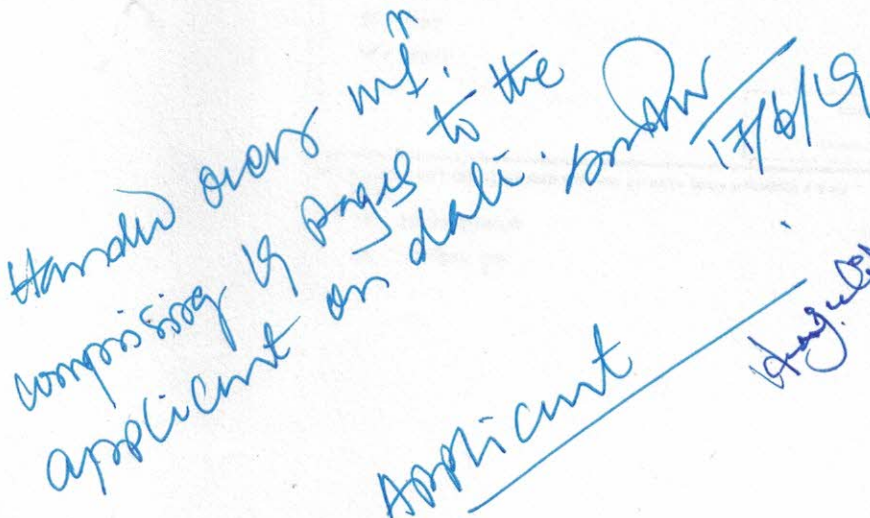 Handed over inf.n
comprising 19 pages to the
applicant on date.
17/6/19
Applicant